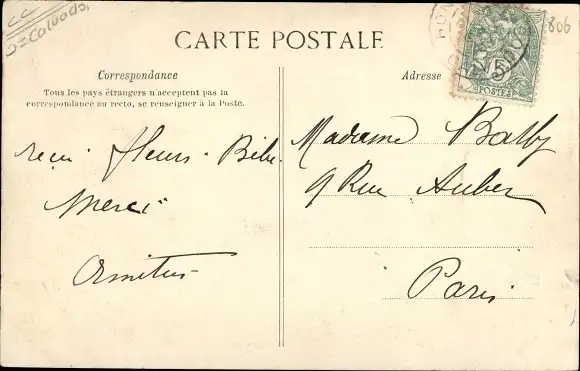 CC
D=Calvados
CARTE POSTALE
806
HON
5
POSTES
Correspondance
Tous les pays étrangers n'acceptent pas la
correspondance au recto, se renseigner à la Poste.
reçu fleurs Bébé
Merci
Adresse
Madame Balby
9 Rue Auber
Paris